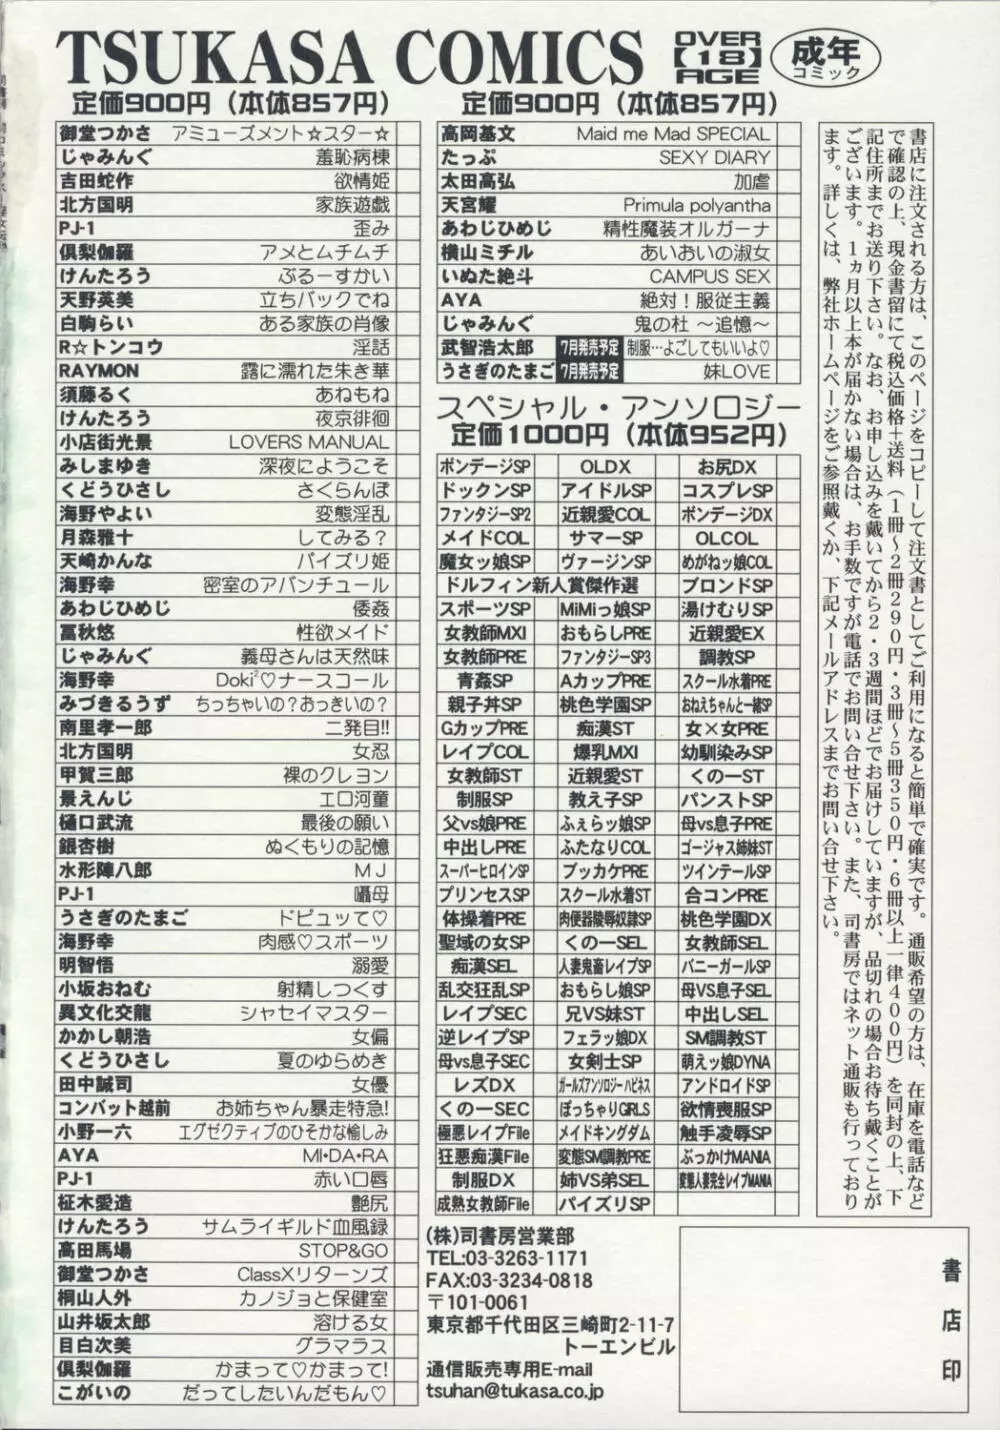 TSUKASA COMICS
OVER 【18】 AGE
成年コミック
定価900円（本体857円）
御堂つかさ アミューズメント☆スター☆
じゃみんぐ 羞恥病棟
吉田蛇作 欲情姫
北方国明 家族遊戯
PJ-1 歪み
倶梨伽羅 アメとムチムチ
けんたろう ぶるーすかい
天野英美 立ちバックでね
白駒らい ある家族の肖像
R☆トンコウ 淫話
RAYMON 露に濡れた朱き華
須藤るく あねもね
けんたろう 夜京徘徊
小店街光景 LOVERS MANUAL
みしまゆき 深夜にようこそ
くどうひさし さくらんぼ
海野やよい 変態淫乱
月森雅十 してみる？
天崎かんな パイズリ姫
海野幸 密室のアバンチュール
あわじひめじ 倭姦
冨秋悠 性欲メイド
じゃみんぐ 義母さんは天然味
海野幸 Doki²♡ナースコール
みづきるうず ちっちゃいの？おっきいの？
南里孝一郎 二発目!!
北方国明 女忍
甲賀三郎 裸のクレヨン
景えんじ エロ河童
樋口武流 最後の願い
銀杏樹 ぬくもりの記憶
水形陣八郎 MJ
PJ-1 囁母
うさぎのたまご ドピュッて♡
海野幸 肉感♡スポーツ
明智悟 溺愛
小坂おねむ 射精しつくす
異文化交龍 シャセイマスター
かかし朝浩 女偏
くどうひさし 夏のゆらめき
田中誠司 女優
コンバット越前 お姉ちゃん暴走特急!
小野一六 エグゼクティブのひそかな愉しみ
AYA MI・DA・RA
PJ-1 赤い口唇
柾木愛造 艶尻
けんたろう サムライギルド血風録
高田馬場 STOP&GO
御堂つかさ ClassXリターンズ
桐山人外 カノジョと保健室
山井坂太郎 溶ける女
目白次美 グラマラス
倶梨伽羅 かまって♡かまって!
こがいの だってしたいんだもん♡
定価900円（本体857円）
高岡基文 Maid me Mad SPECIAL
たっぷ SEXY DIARY
太田高弘 加虐
天宮耀 Primula polyantha
あわじひめじ 精性魔装オルガーナ
横山ミチル あいおいの淑女
いぬた絶斗 CAMPUS SEX
AYA 絶対！服従主義
じゃみんぐ 鬼の杜 ～追憶～
武智浩太郎 7月発売予定 制服…よごしてもいいよ♡
うさぎのたまご 7月発売予定 妹LOVE
スペシャル・アンソロジー
定価1000円（本体952円）
ボンデージSP OLDX お尻DX
ドックンSP アイドルSP コスプレSP
ファンタジーSP2 近親愛COL ボンデージDX
メイドCOL サマーSP OLCOL
魔女ッ娘SP ヴァージンSP めがねッ娘COL
ドルフィン新人賞傑作選 ブロンドSP
スポーツSP MiMiっ娘SP 湯けむりSP
女教師MXI おもらしPRE 近親愛EX
女教師PRE ファンタジーSP3 調教SP
青姦SP AカップPRE スクール水着PRE
親子丼SP 桃色学園SP おねえちゃんと一緒SP
GカップPRE 痴漢ST 女×女PRE
レイプCOL 爆乳MXI 幼馴染みSP
女教師ST 近親愛ST くの一ST
制服SP 教え子SP パンストSP
父vs娘PRE ふぇらッ娘SP 母vs息子PRE
中出しPRE ふたなりCOL ゴージャス姉妹ST
スーパーヒロインSP ブッカケPRE ツインテールSP
プリンセスSP スクール水着ST 合コンPRE
体操着PRE 肉便器陵辱奴隷SP 桃色学園DX
聖域の女SP くの一SEL 女教師SEL
痴漢SEL 人妻鬼畜レイプSP バニーガールSP
乱交狂乱SP おもらし娘SP 母VS息子SEL
レイプSEC 兄VS妹ST 中出しSEL
逆レイプSP フェラッ娘DX SM調教ST
母vs息子SEC 女剣士SP 萌えッ娘DYNA
レズDX ガールズアンソロジーハピネス アンドロイドSP
くの一SEC ぽっちゃりGIRLS 欲情喪服SP
極悪レイプFile メイドキングダム 触手凌辱SP
狂悪痴漢File 変態SM調教PRE ぶっかけMANIA
制服DX 姉VS弟SEL 変態人妻完全レイプMANIA
成熟女教師File パイズリSP
書店に注文される方は、このページをコピーして注文書としてご利用になると簡単で確実です。通販希望の方は、在庫を電話など
で確認の上、現金書留にて税込価格＋送料（1冊～2冊290円・3冊～5冊350円・6冊以上一律400円）を同封の上、下
記住所までお送り下さい。なお、お申し込みを戴いてから2・3週間ほどでお届けしていますが、品切れの場合お待ち戴くことが
ございます。1ヵ月以上本が届かない場合は、お手数ですが電話でお問い合せ下さい。また、司書房ではネット通販も行っており
ます。詳しくは、弊社ホームページをご参照戴くか、下記メールアドレスまでお問い合せ下さい。
(株)司書房営業部
TEL:03-3263-1171
FAX:03-3234-0818
〒101-0061
東京都千代田区三崎町2-11-7
トーエンビル
通信販売専用E-mail
tsuhan@tukasa.co.jp
書店印